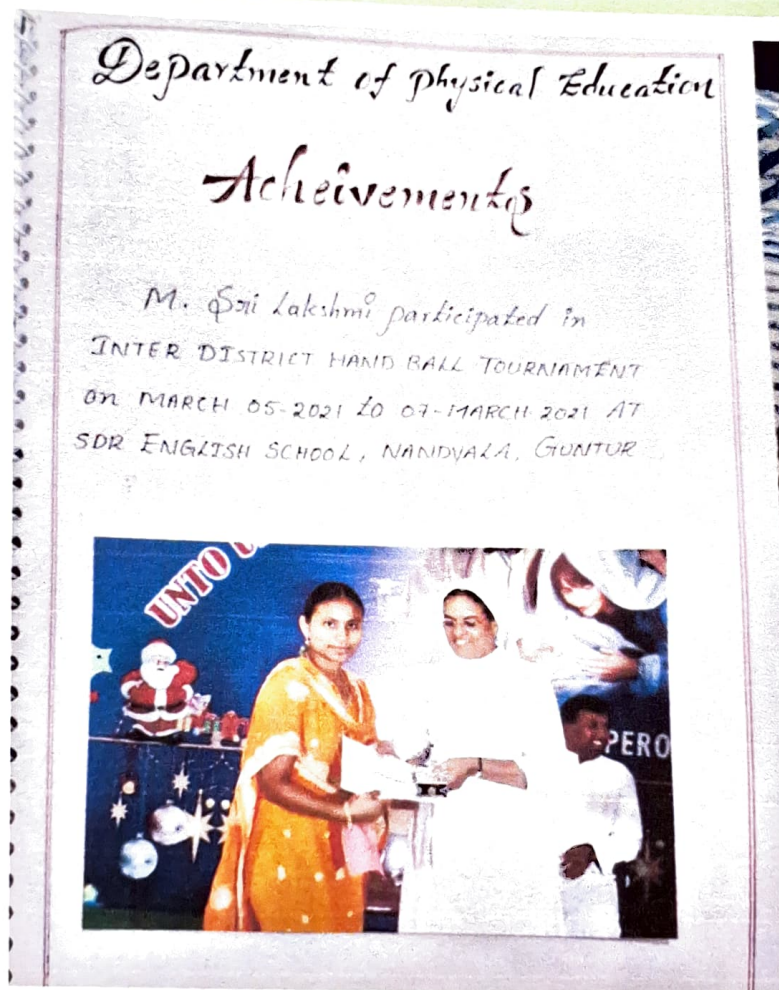 Department of Physical Education
Acheivements
M. Sri Lakshmi participated in
INTER DISTRICT HAND BALL TOURNAMENT
on MARCH 05-2021 to 07-MARCH-2021 AT
SDR ENGLISH SCHOOL, NANDYALA, GUNTUR
UNTO U
PERO